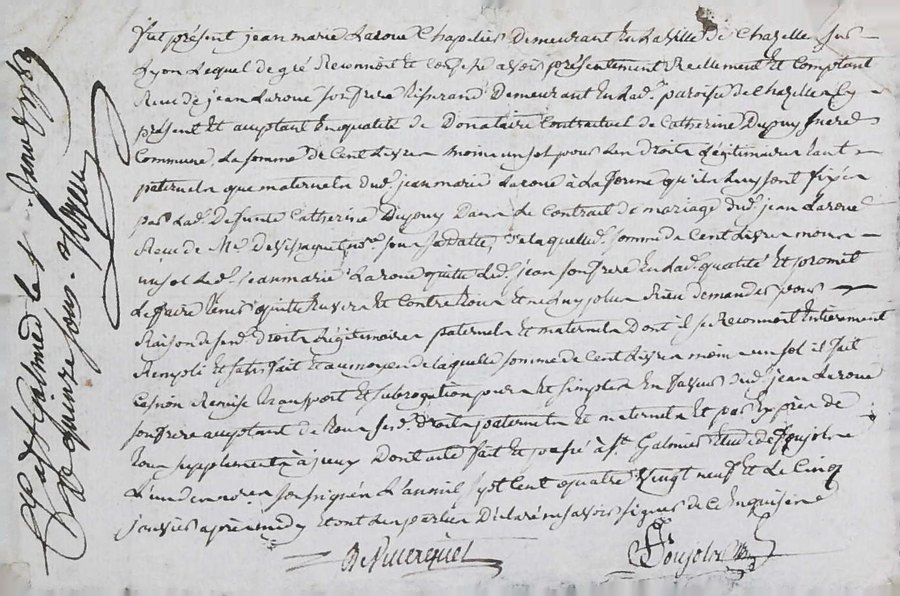 fut présent jean marie Laroue Chapelier Demeurant En La ville De Chazelle sur
Lyon Lequel de gré Reconnoit Et Confesse avoir présentement Reellement Et Comptant
Reçu de jean Laroue son frere Tisserand Demeurant En Lad. paroisse de Chazelle Cy
présent Et acceptant En qualité de Donataire Contractuel de Catherine Dupuy mere
Commune La somme De Cent Livres moins un sol pour Les Droits Légitimaires tant
paternels que maternels dud. jean marie Laroue à La forme qu'ils Luy sont fixés
par Lad. Defunte Catherine Dupuy Dans Le Contrat de mariage dud. jean Laroue
Reçu de Me. nre. sous sa datte, De laquelle somme de Cent Livres moins
un sol Led. jean marie Laroue quitte Led. jean son frere En Lad. qualité Et promet
Le faire tenir quitte Envers Et Contre tous Et ne Luy plus Rien demander pour
Raison de sesd. Droits Légitimaires paternels et maternels Dont il se Reconnoit Entierement
Rempli Et satisfait Et au moyen de laquelle somme de Cent Livres moins un sol il fait
Cession Remise transport Et subrogation pure Et simple En faveur dud. jean Laroue
son frere acceptant de tous sesd. Droits paternels Et maternels Et par Exprès de
tous supplements à iceux Dont acte fait Et passé à St. Galmier Etude de Poujols
L'un de nous no.res soussignés L'an mil sept Cent quatre vingt neuf Et Le Cinq
janvier après midy Et ont Les parties Déclaré ne savoir signer de Ce Enquises
Poujols
à St. Galmier le janvier 1789
quinze sous